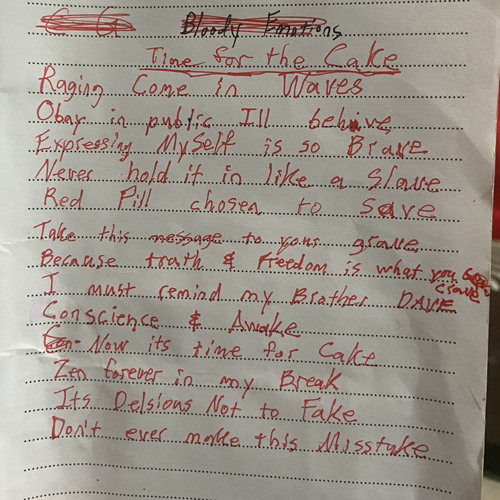 Bloody Emotions
Time for the Cake
Raging Come in Waves
Obay in public Ill behave
Expressing MySelf is so Brave
Never hold it in like a Slave
Red Pill chosen to save
Take this message to your grave
Because truth & Freedom is what you crave
I must remind my Brother DAVE
Conscience & Awake
Now its time for Cake
Zen forever in my Break
Its Delsious Not to Fake
Don't ever make this Misstake